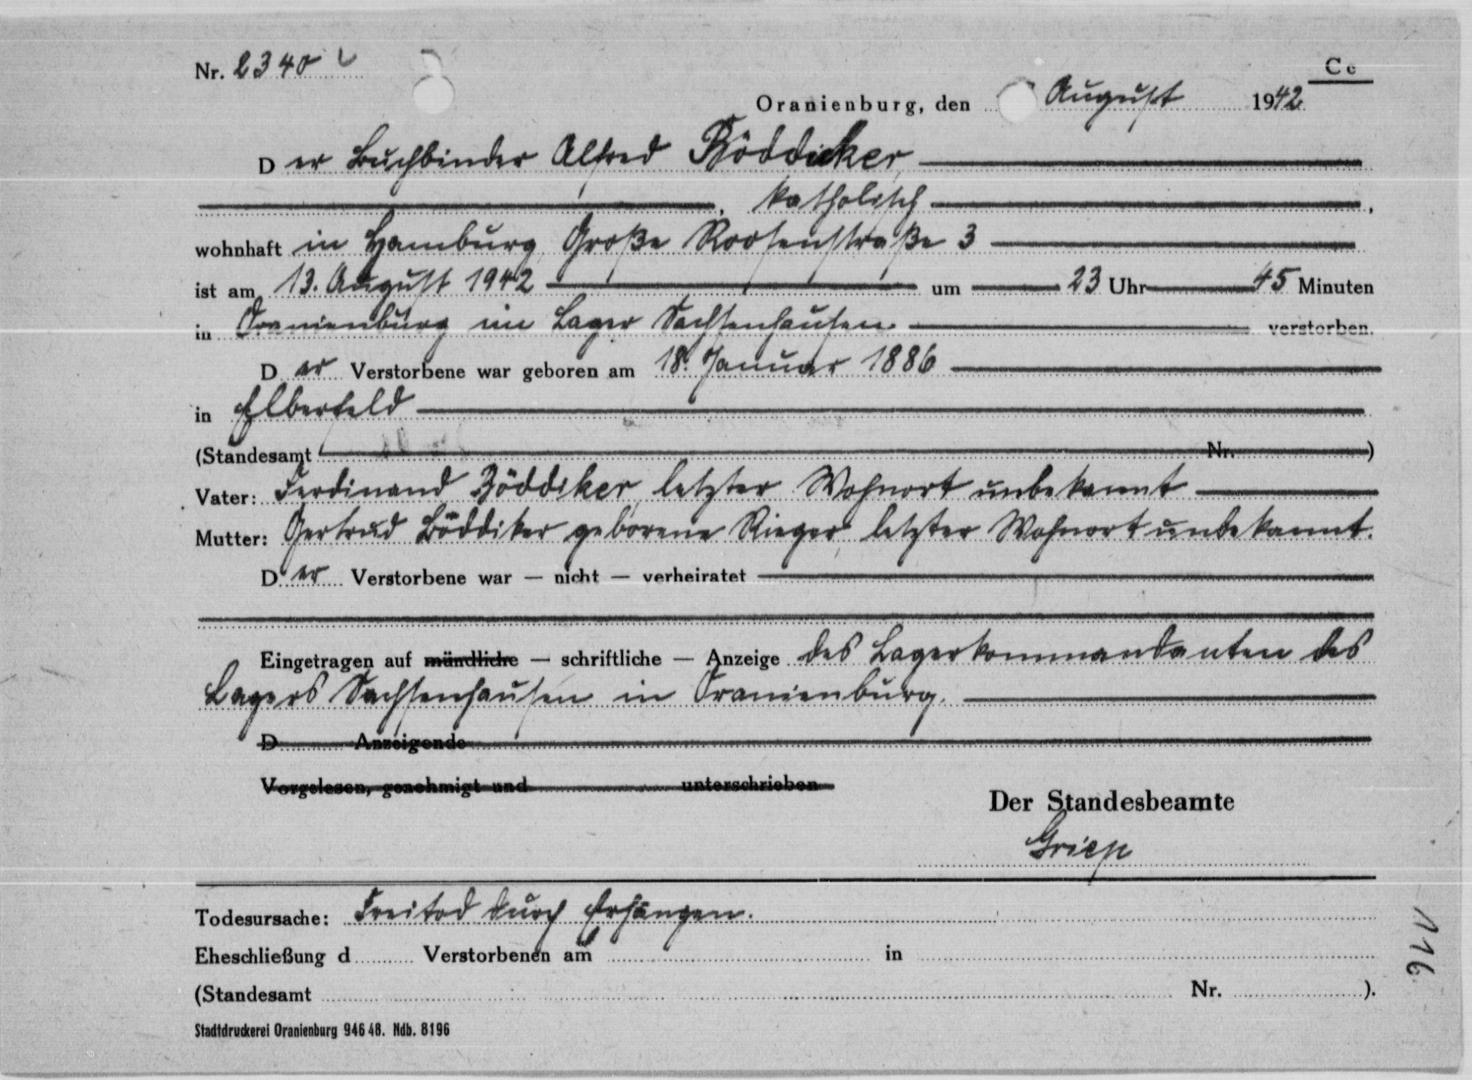 Nr. 2340
Ce
Oranienburg, den August 1942
Der Buchbinder Alfred Böddiker
, katholisch ,
wohnhaft in Hamburg, Große Roosenstraße 3
ist am 13. August 1942 um 23 Uhr 45 Minuten
in Oranienburg im Lager Sachsenhausen. verstorben.
Der Verstorbene war geboren am 18. Januar 1886
in Elberfeld
(Standesamt Nr. )
Vater: Ferdinand Böddiker, letzter Wohnort unbekannt
Mutter: Gertrud Böddiker geborene Rieger, letzter Wohnort unbekannt.
Der Verstorbene war — nicht — verheiratet
Eingetragen auf mündliche — schriftliche — Anzeige des Lagerkommandanten des
Lagers Sachsenhausen in Oranienburg.
D Anzeigende
Vorgelesen, genehmigt und unterschrieben
Der Standesbeamte
Griep
Todesursache: Freitod durch Erhängen.
Eheschließung d Verstorbenen am in
(Standesamt Nr. ).
Stadtdruckerei Oranienburg 946 48. Ndb. 8196
116